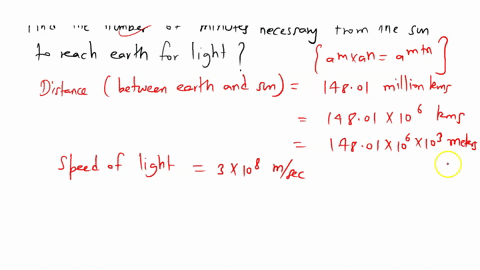 Find the number of minutes necessary from the sun
to reach earth for light ?
{ aᵐxaⁿ = aᵐ⁺ⁿ }
Distance ( between earth and sun ) = 148.01 million kms
= 148.01 × 10⁶ kms
= 148.01 × 10⁶ × 10³ meters
Speed of light = 3 × 10⁸ m/sec